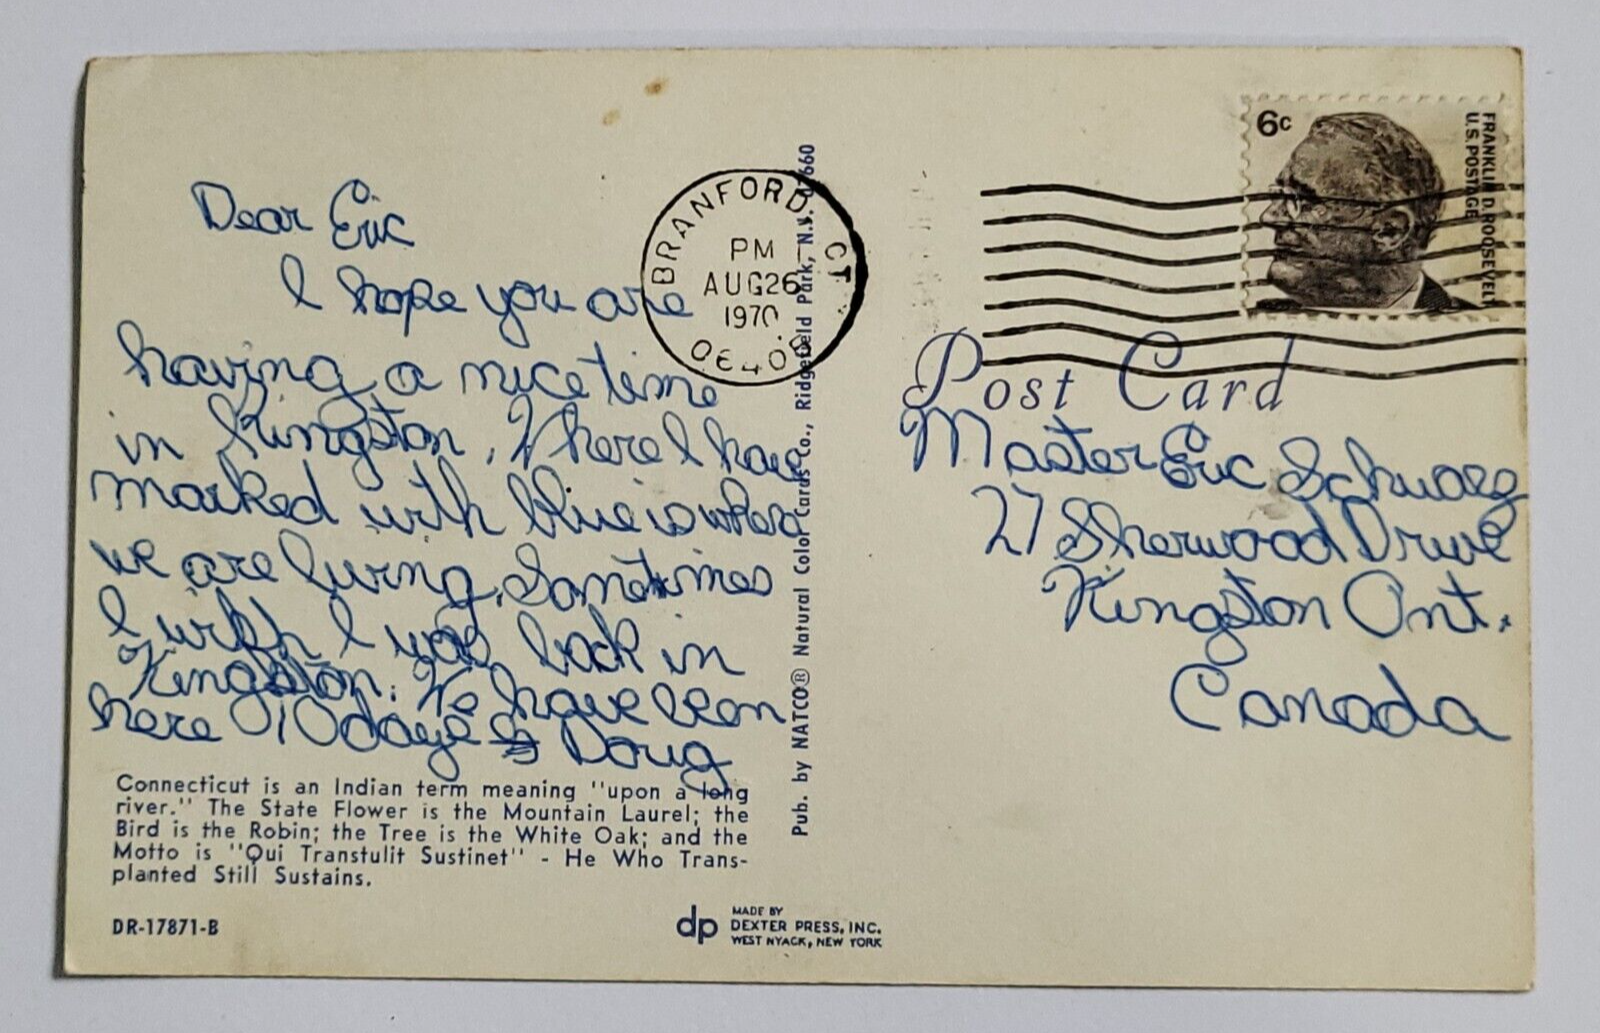 Dear Eric
I hope you are
having a nice time
in Kingston. Where I have
marked with blue is where
we are living. Sometimes
I wish I was back in
Kingston. We have been
here 10 days Doug
Connecticut is an Indian term meaning "upon a long
river." The State Flower is the Mountain Laurel; the
Bird is the Robin; the Tree is the White Oak; and the
Motto is "Qui Transtulit Sustinet" - He Who Trans-
planted Still Sustains.
DR-17871-B
dp
MADE BY
DEXTER PRESS, INC.
WEST NYACK, NEW YORK
Pub. by NATCO® Natural Color Cards Co., Ridgefield Park, N.J. 07660
BRANFORD, CT.
PM
AUG 26
1970
6c
FRANKLIN D. ROOSEVELT
U.S. POSTAGE
Post Card
Master Eric
27 Sherwood Drive
Kingston Ont.
Canada